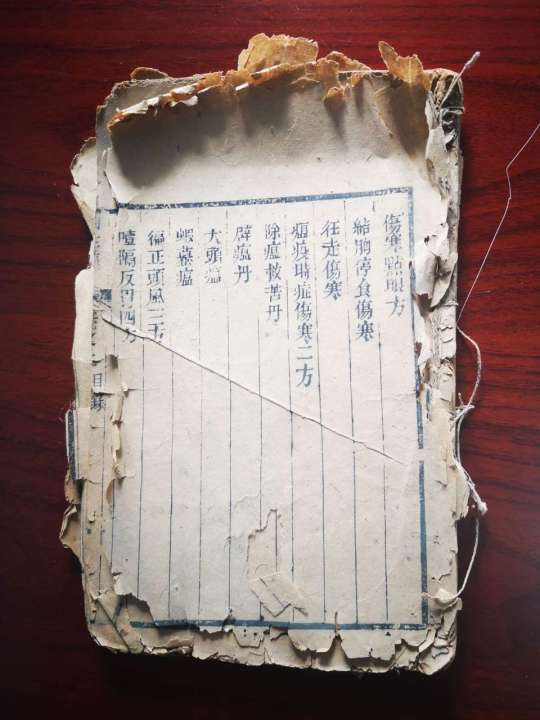 傷寒點眼方
結胸停食傷寒
狂走傷寒
瘟疫陽症傷寒二方
除瘟救苦丹
辟瘟丹
大頭瘟
蝦蟇瘟
偏正頭風三方
噎隔反胃四方
目錄